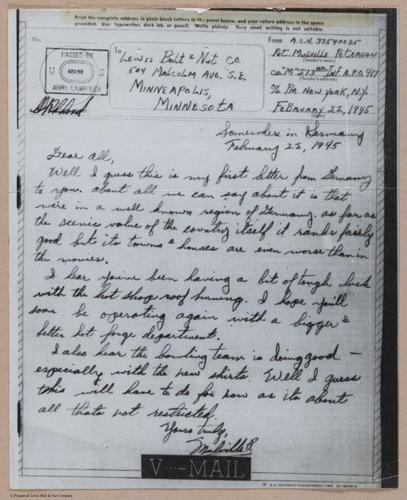 Print the complete address in plain block letters in the panel below, and your return address in the space
provided. Use typewriter, dark ink, or pencil. Write plainly. Very small writing is not suitable.
No.
PASSED BY
ARMY EXAMINER
To
Lewis Bolt & Nut Co.
504 Malcolm Ave. S.E.
Minneapolis,
Minnesota
From A.S.N. 37540035
Pvt. Melville Peterson
(Sender's name)
Co. "M" 273rd Inf. A.P.O. 417
(Sender's address)
℅ P.M. New York, N.Y.
February 22, 1945
(Date)
Somewhere in Germany
February 22, 1945
Dear All,
Well I guess this is my first letter from Germany
to you. About all we can say about it is that
we're in a well known region of Germany. As far as
the scenic value of the country itself it ranks fairly
good but its towns & houses are even worse than in
the movies.
I hear you've been having a bit of tough luck
with the hot shop roof burning. I hope you'll
soon be operating again with a bigger &
better hot forge department.
I also hear the bowling team is doing good –
especially with the new shirts. Well I guess
this will have to do for now as its about
all thats not restricted.
Yours truly,
Melville P.
V···–MAIL
© Pioneer & Lewis Bolt & Nut Company